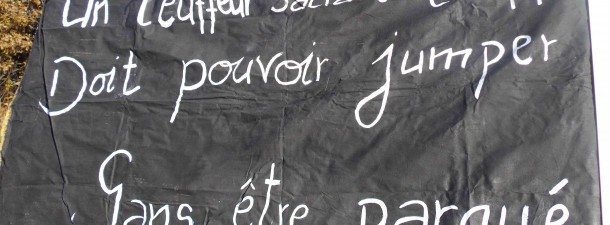 Un teuffeur
Doit pouvoir jumper
Sans être parqué